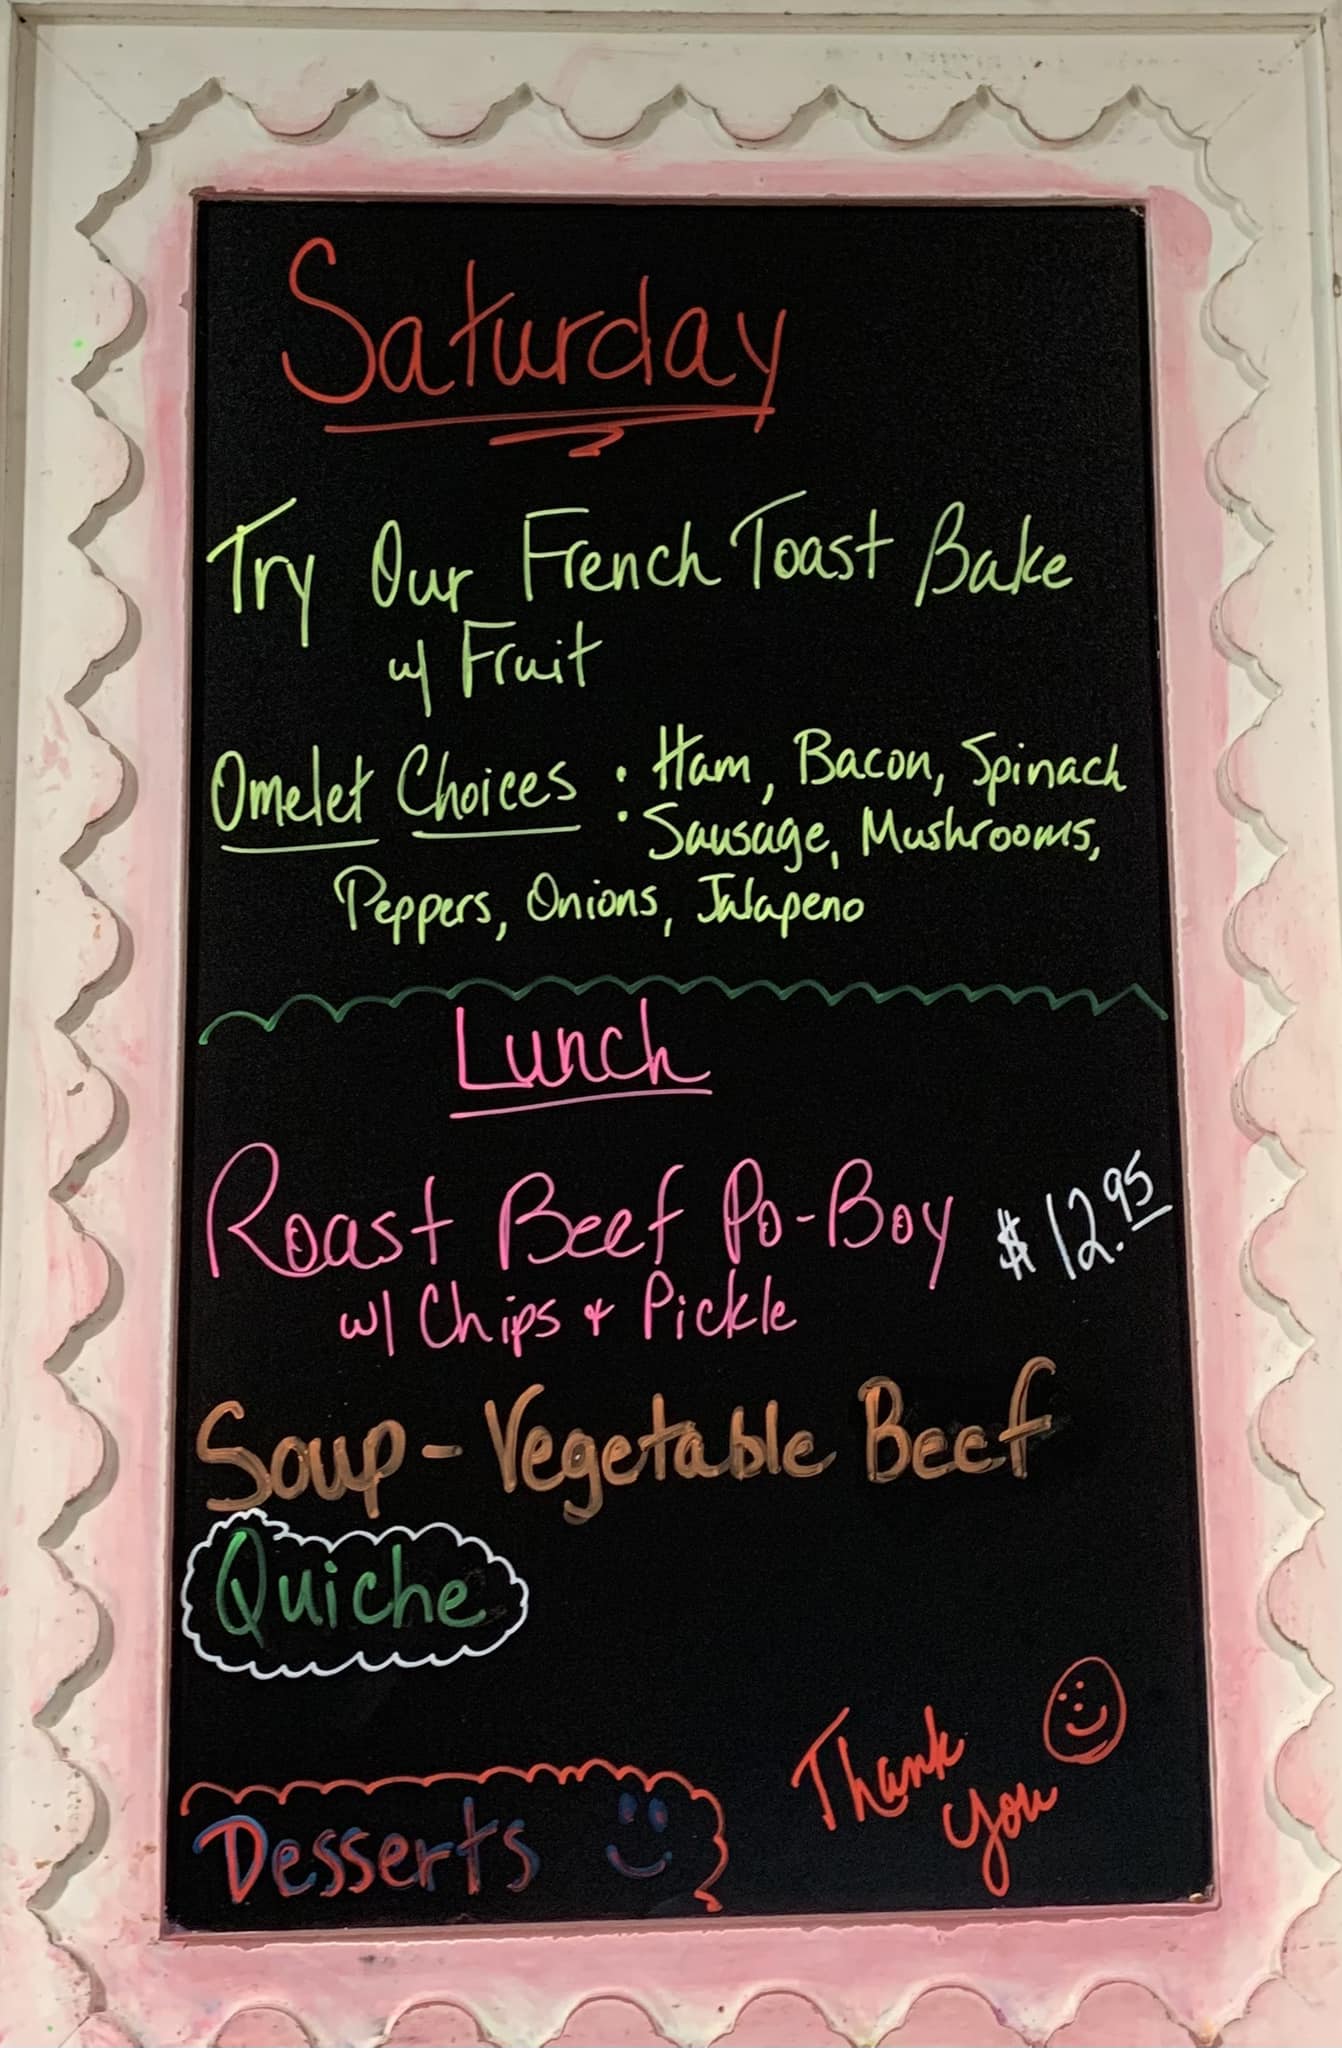 Saturday
Try Our French Toast Bake
w/ Fruit
Omelet Choices : Ham, Bacon, Spinach
Sausage, Mushrooms,
Peppers, Onions, Jalapeno
Lunch
Roast Beef Po-Boy $12.95
w/ Chips & Pickle
Soup - Vegetable Beef
Quiche
Thank
you
Desserts